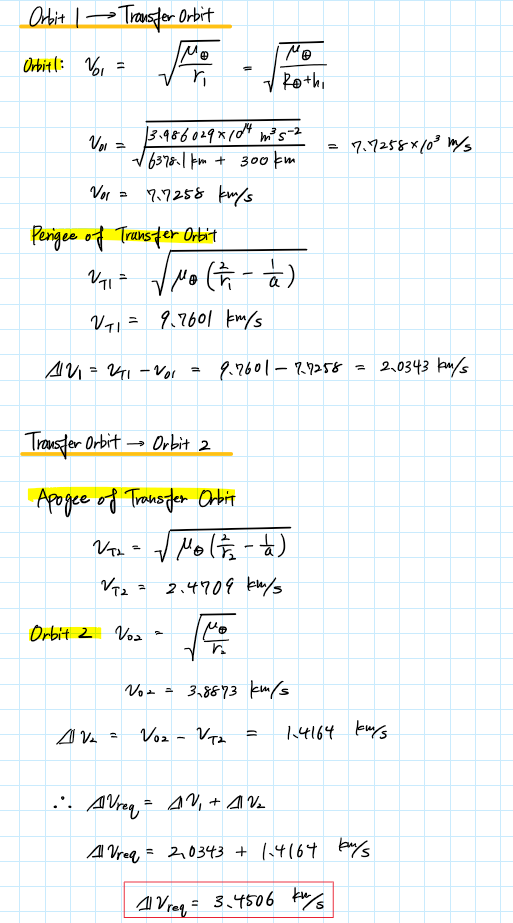 Orbit 1 → Transfer Orbit
Orbit1: V₀₁ = √(μ⊕/r₁) = √(μ⊕/(R⊕+h₁))
V₀₁ = √(3.986029×10¹⁴ m³s⁻²/(6378.1 km + 300 km)) = 7.7258×10³ m/s
V₀₁ = 7.7258 km/s
Perigee of Transfer Orbit
V_T1 = √(μ⊕(2/r₁ − 1/a))
V_T1 = 9.7601 km/s
ΔV₁ = V_T1 − V₀₁ = 9.7601 − 7.7258 = 2.0343 km/s
Transfer Orbit → Orbit 2
Apogee of Transfer Orbit
V_T2 = √(μ⊕(2/r₂ − 1/a))
V_T2 = 2.4709 km/s
Orbit 2 V₀₂ = √(μ⊕/r₂)
V₀₂ = 3.8873 km/s
ΔV₂ = V₀₂ − V_T2 = 1.4164 km/s
∴ ΔV_req = ΔV₁ + ΔV₂
ΔV_req = 2.0343 + 1.4164 km/s
ΔV_req = 3.4506 km/s